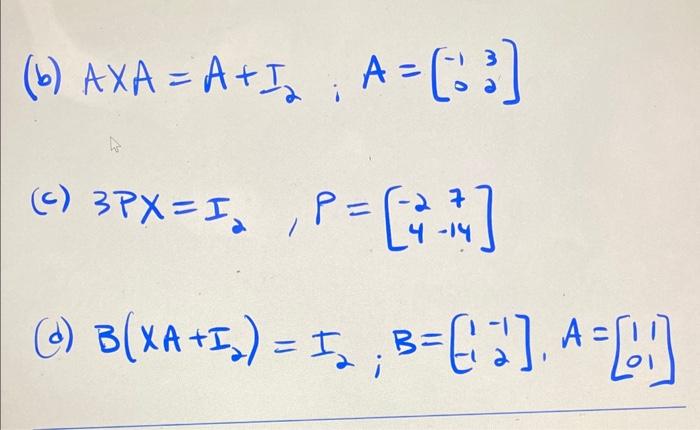 (b) AXA = A + I₂ ; A = [-1 3
0 2]
(c) 3PX = I₂ , P = [-2 7
4 -14]
(d) B(XA + I₂) = I₂ ; B = [1 -1
-1 2], A = [1 1
0 1]